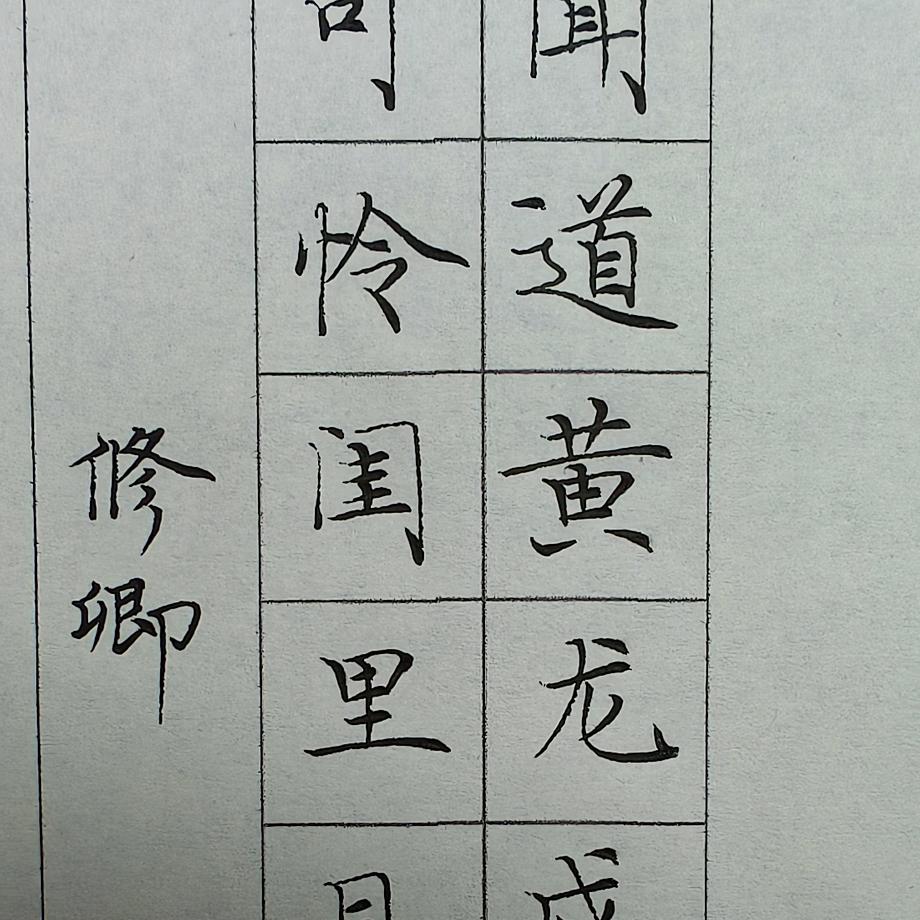 闻道黄龙戍
可怜闺里月
修卿